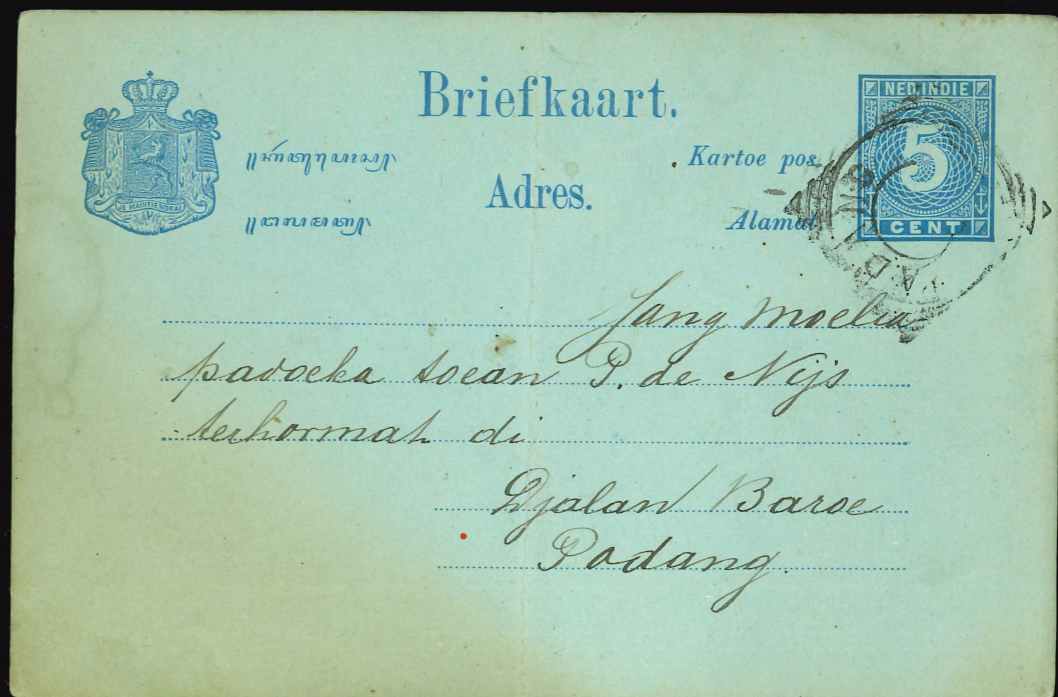 Briefkaart.
NED. INDIE
5
CENT
JE MAINTIENDRAI
Kartoe pos
Adres.
Alamat
PADANG
Jang Moelia
padoeka toean P. de Nijs
terhormat di
Djalan Baroe
Padang.